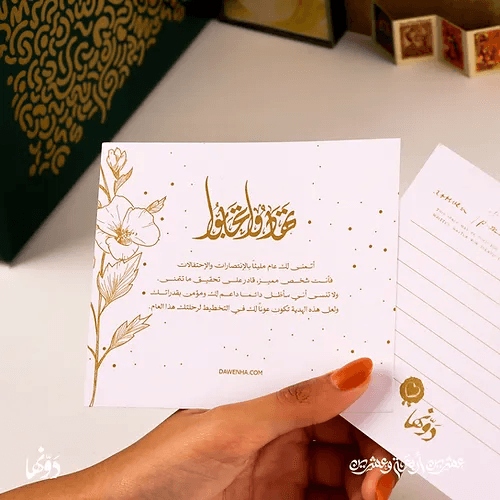 تهادوا تحابوا
أتمنى لك عام مليئاً بالإنتصارات والإحتفالات
فأنت شخص مميز، قادر على تحقيق ما تتمنى.
ولا تنسى أني سأظل دائما داعم لك ومؤمن بقدراتك
ولعل هذه الهدية تكون عونا لك في التخطيط لرحلتك هذا العام.
DAWENHA.COM
دَوّنها
دَوّنها
عشرين أربعة وعشرين